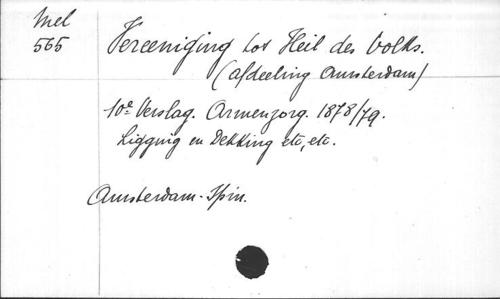 Mel
565
Vereeniging tot Heil des Volks.
(afdeeling Amsterdam)
10e Verslag. Armenzorg. 1878/79.
Ligging en Dekking etc, etc.
Amsterdam - Spin.